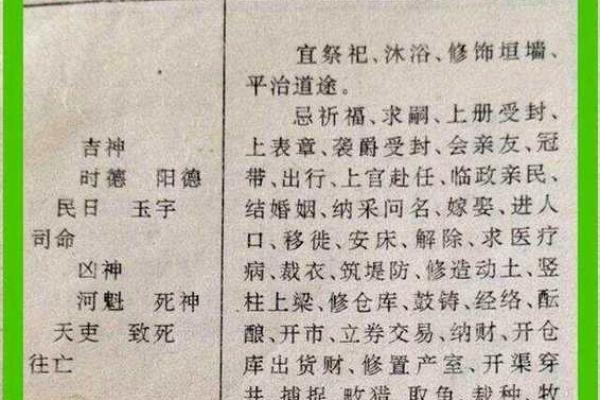 吉神
时德 阳德
民日 玉宇
司命
凶神
河魁 死神
天吏 致死
往亡
宜祭祀、沐浴、修饰垣墙、
平治道途。
忌祈福、求嗣、上册受封、
上表章、袭爵受封、会亲友、冠
带、出行、上官赴任、临政亲民、
结婚姻、纳采问名、嫁娶、进人
口、移徙、安床、解除、求医疗
病、裁衣、筑堤防、修造动土、竖
柱上梁、修仓库、鼓铸、经络、酝
酿、开市、立券交易、纳财、开仓
库出货财、修置产室、开渠穿
井、捕捉、畋猎、取鱼、栽种、牧